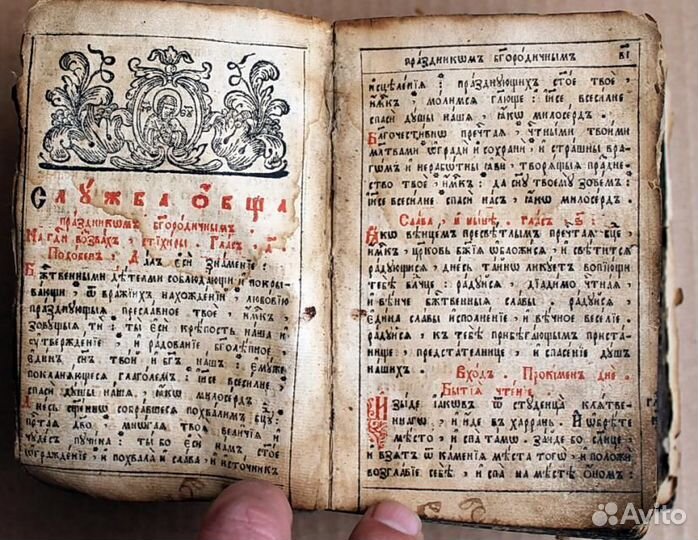 Слꙋ́жба ѻ҆́бщаѧ
пра́здникѡмъ бг҃оро́дичнымъ
На гдⷭ҇и воззва́хъ , стїхи̑ры . Гла́съ , д҃
Подо́бенъ , Да́лъ є҆сѝ зна́менїе :
Бж҃твенными дѣ́тельми соблюда́ющи и҆ покры
ва́ющи , ѿ вра́жїихъ нахожде́нїй , любо́вїю
пра́зднꙋющыѧ пресла́вное твоѐ , и҆́мк҃ъ
зовꙋ́щыѧ тѝ : ты̀ є҆сѝ крѣ́пость на́ша и҆
ᲂу҆твержде́нїе , и҆ ра́дованїе бг҃олѣ́пное ,
є҆ди́нъ сн҃ъ , тво́й и҆ бг҃ъ на́шъ : є҆мꙋ́же
покланѧ́ющесѧ глаго́лемъ : і҆и҃се всеси́лне
спасѝ дꙋ́шы на́шѧ , ꙗ҆́кѡ млⷭ҇рдъ .
Дне́сь собра́вшесѧ похва́лимъ
пꙋчи́на : ты́ бо є҆сѝ на́мъ сто́е
ѡ҆гражде́нїе , и҆ похвала̀ и҆ сла́ва , и҆ и҆сто́чникъ
пра́здникѡмъ бг҃оро́дичнымъ в҃і
и҆сцѣле́нїѧ : пра́зднꙋющихъ ст҃о́е твоѐ ,
и҆́мк҃ъ , мо́лимсѧ гл҃юще : і҆и҃се , всеси́лне
спасѝ дꙋ́шы на́шѧ , ꙗ҆́кѡ милосе́рдъ .
Бл҃гочести́внѡ пречⷭ҇таѧ , чⷭ҇тны́ми твои́ми
мл҃твами ѡ҆градѝ и҆ сохранѝ , и҆ стра́шны вра
гѡ́мъ и҆ нерабѡ́тны ꙗ҆вѝ , творѧ́щыѧ пра́здне
ство твоѐ , и҆́мк҃ъ : да сн҃ꙋ твоемꙋ̀ зове́мъ :
і҆и҃се всеси́лне спасѝ на́съ , ꙗ҆́кѡ милосе́рдъ .
Сла́ва , и҆ ны́нѣ , гла́съ , и҃ :
Ꙗ҆́кѡ вѣнце́мъ пресвѣ́тлымъ пречⷭ҇таѧ бц҃е ,
и҆́мк҃ъ , цр҃ковь бж҃їѧ ѡ҆бложи́сѧ , и҆ свѣ́титсѧ
ра́дꙋющисѧ , дне́сь та́йнѡ ликꙋ́етъ вопїю́щи
тебѣ̀ влⷣчце : ра́дꙋйсѧ , дїади́мо чⷭ҇тна́ѧ
и҆ вѣ́нче бж҃твенныѧ сла́вы . ра́дꙋйсѧ ,
є҆ди́на сла́вы и҆сполне́нїе , и҆ вѣ́чное весе́лїе .
ра́дꙋйсѧ , къ тебѣ̀ прибѣга́ющымъ приста́
нище , предста́телнице , и҆ спасе́нїе дꙋ́шъ
на́шихъ .
Вхо́дъ . Проки́менъ дне .
Бытїѧ̀ чте́нїе .
И҆зы́де і҆а́кѡвъ ѿ стꙋденца̀ клѧ́твен
нагѡ , и҆ и҆́де въ харра́нь . И҆ ѡ҆брѣ́те
мѣ́сто , и҆ спа̀ та́мѡ . за́йде бо со́лнце ,
и҆ взѧ́тъ ѿ ка́менїѧ мѣ́ста тогѡ̀ , и҆ положѝ
возгла́вїе себѣ̀ , и҆ спа̀ на мѣ́стѣ ѻ҆́номъ :
Avito